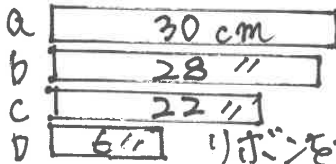 a 30 cm
b 28 〃
c 22 〃
D 6 〃 リボンを